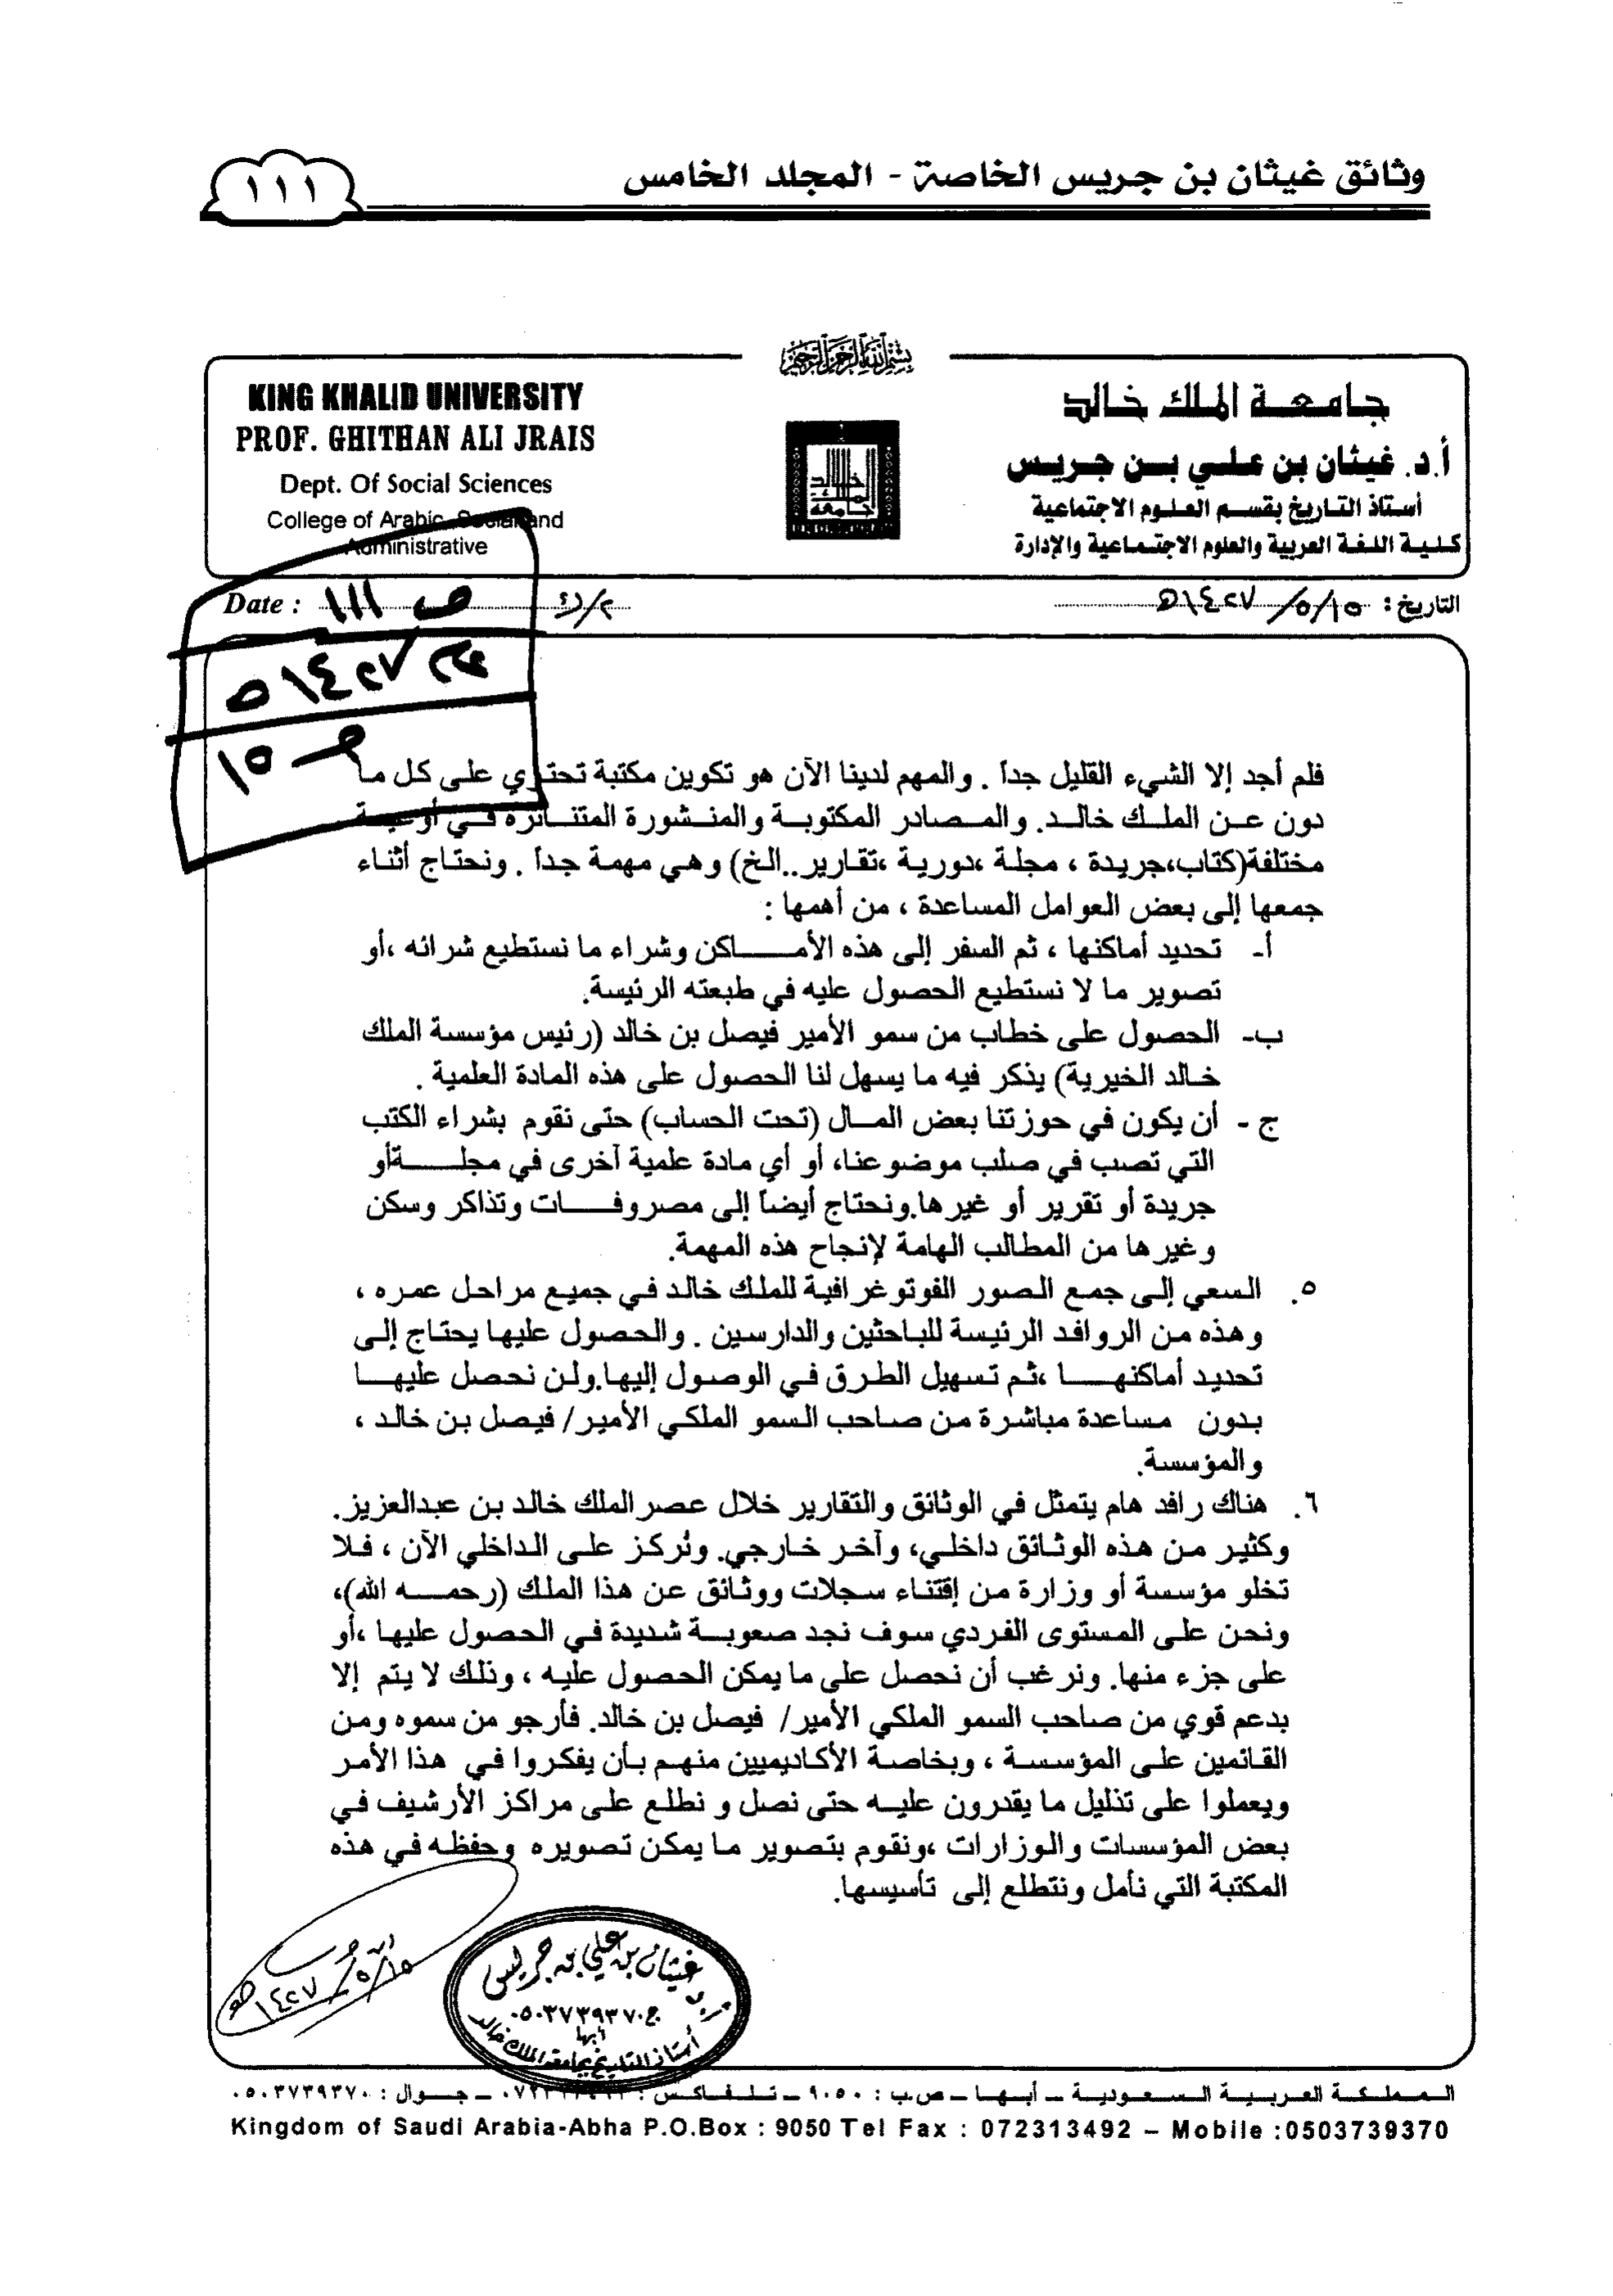 وثائق غيثان بن جريس الخاصة - المجلد الخامس
١١١
بسم الله الرحمن الرحيم
جامعة الملك خالد
أ.د. غيثان بن علي بن جريس
أستاذ التاريخ بقسم العلوم الاجتماعية
كلية اللغة العربية والعلوم الاجتماعية والإدارة
KING KHALID UNIVERSITY
PROF. GHITHAN ALI JRAIS
Dept. Of Social Sciences
College of Arabic, Social and
Administrative
التاريخ: ١٥/٥/١٤٢٧هـ
Date :
ص ١١١
١٤٢٧هـ
ص ١٥
فلم أجد إلا الشيء القليل جداً . والمهم لدينا الآن هو تكوين مكتبة تحتوي على كل ما
دون عن الملك خالد. والمصادر المكتوبة والمنشورة المتناثرة في أوعية
مختلفة(كتاب،جريدة ، مجلة ،دورية ،تقارير..الخ) وهي مهمة جداً . ونحتاج أثناء
جمعها إلى بعض العوامل المساعدة ، من أهمها :
أ- تحديد أماكنها ، ثم السفر إلى هذه الأماكن وشراء ما نستطيع شرائه ،أو
تصوير ما لا نستطيع الحصول عليه في طبعته الرئيسة.
ب- الحصول على خطاب من سمو الأمير فيصل بن خالد (رئيس مؤسسة الملك
خالد الخيرية) يذكر فيه ما يسهل لنا الحصول على هذه المادة العلمية .
ج - أن يكون في حوزتنا بعض المال (تحت الحساب) حتى نقوم بشراء الكتب
التي تصب في صلب موضوعنا، أو أي مادة علمية آخرى في مجلة أو
جريدة أو تقرير أو غيرها.ونحتاج أيضاً إلى مصروفات وتذاكر وسكن
وغيرها من المطالب الهامة لإنجاح هذه المهمة.
٥. السعي إلى جمع الصور الفوتوغرافية للملك خالد في جميع مراحل عمره ،
وهذه من الروافد الرئيسة للباحثين والدارسين . والحصول عليها يحتاج إلى
تحديد أماكنها ،ثم تسهيل الطرق في الوصول إليها.ولن نحصل عليها
بدون مساعدة مباشرة من صاحب السمو الملكي الأمير/ فيصل بن خالد ،
والمؤسسة.
٦. هناك رافد هام يتمثل في الوثائق والتقارير خلال عصر الملك خالد بن عبدالعزيز.
وكثير من هذه الوثائق داخلي، وآخر خارجي. ونُركز على الداخلي الآن ، فلا
تخلو مؤسسة أو وزارة من إقتناء سجلات ووثائق عن هذا الملك (رحمه الله)،
ونحن على المستوى الفردي سوف نجد صعوبة شديدة في الحصول عليها ،أو
على جزء منها. ونرغب أن نحصل على ما يمكن الحصول عليه ، وذلك لا يتم إلا
بدعم قوي من صاحب السمو الملكي الأمير/ فيصل بن خالد. فأرجو من سموه ومن
القائمين على المؤسسة ، وبخاصة الأكاديميين منهم بأن يفكروا في هذا الأمر
ويعملوا على تذليل ما يقدرون عليه حتى نصل و نطلع على مراكز الأرشيف في
بعض المؤسسات والوزارات ،ونقوم بتصوير ما يمكن تصويره وحفظه في هذه
المكتبة التي نأمل ونتطلع إلى تأسيسها.
غيثان بن علي بن جريس
ج.٠٥٠٣٧٣٩٣٧٠
أبها
أستاذ التاريخ بجامعة الملك خالد
١٥/٥/١٤٢٧هـ
المملكة العربية السعودية – أبها – ص.ب : ٩٠٥٠ – تلفاكس : – جوال : ٠٥٠٣٧٣٩٣٧٠
Kingdom of Saudi Arabia-Abha P.O.Box : 9050 Tel Fax : 072313492 – Mobile :0503739370